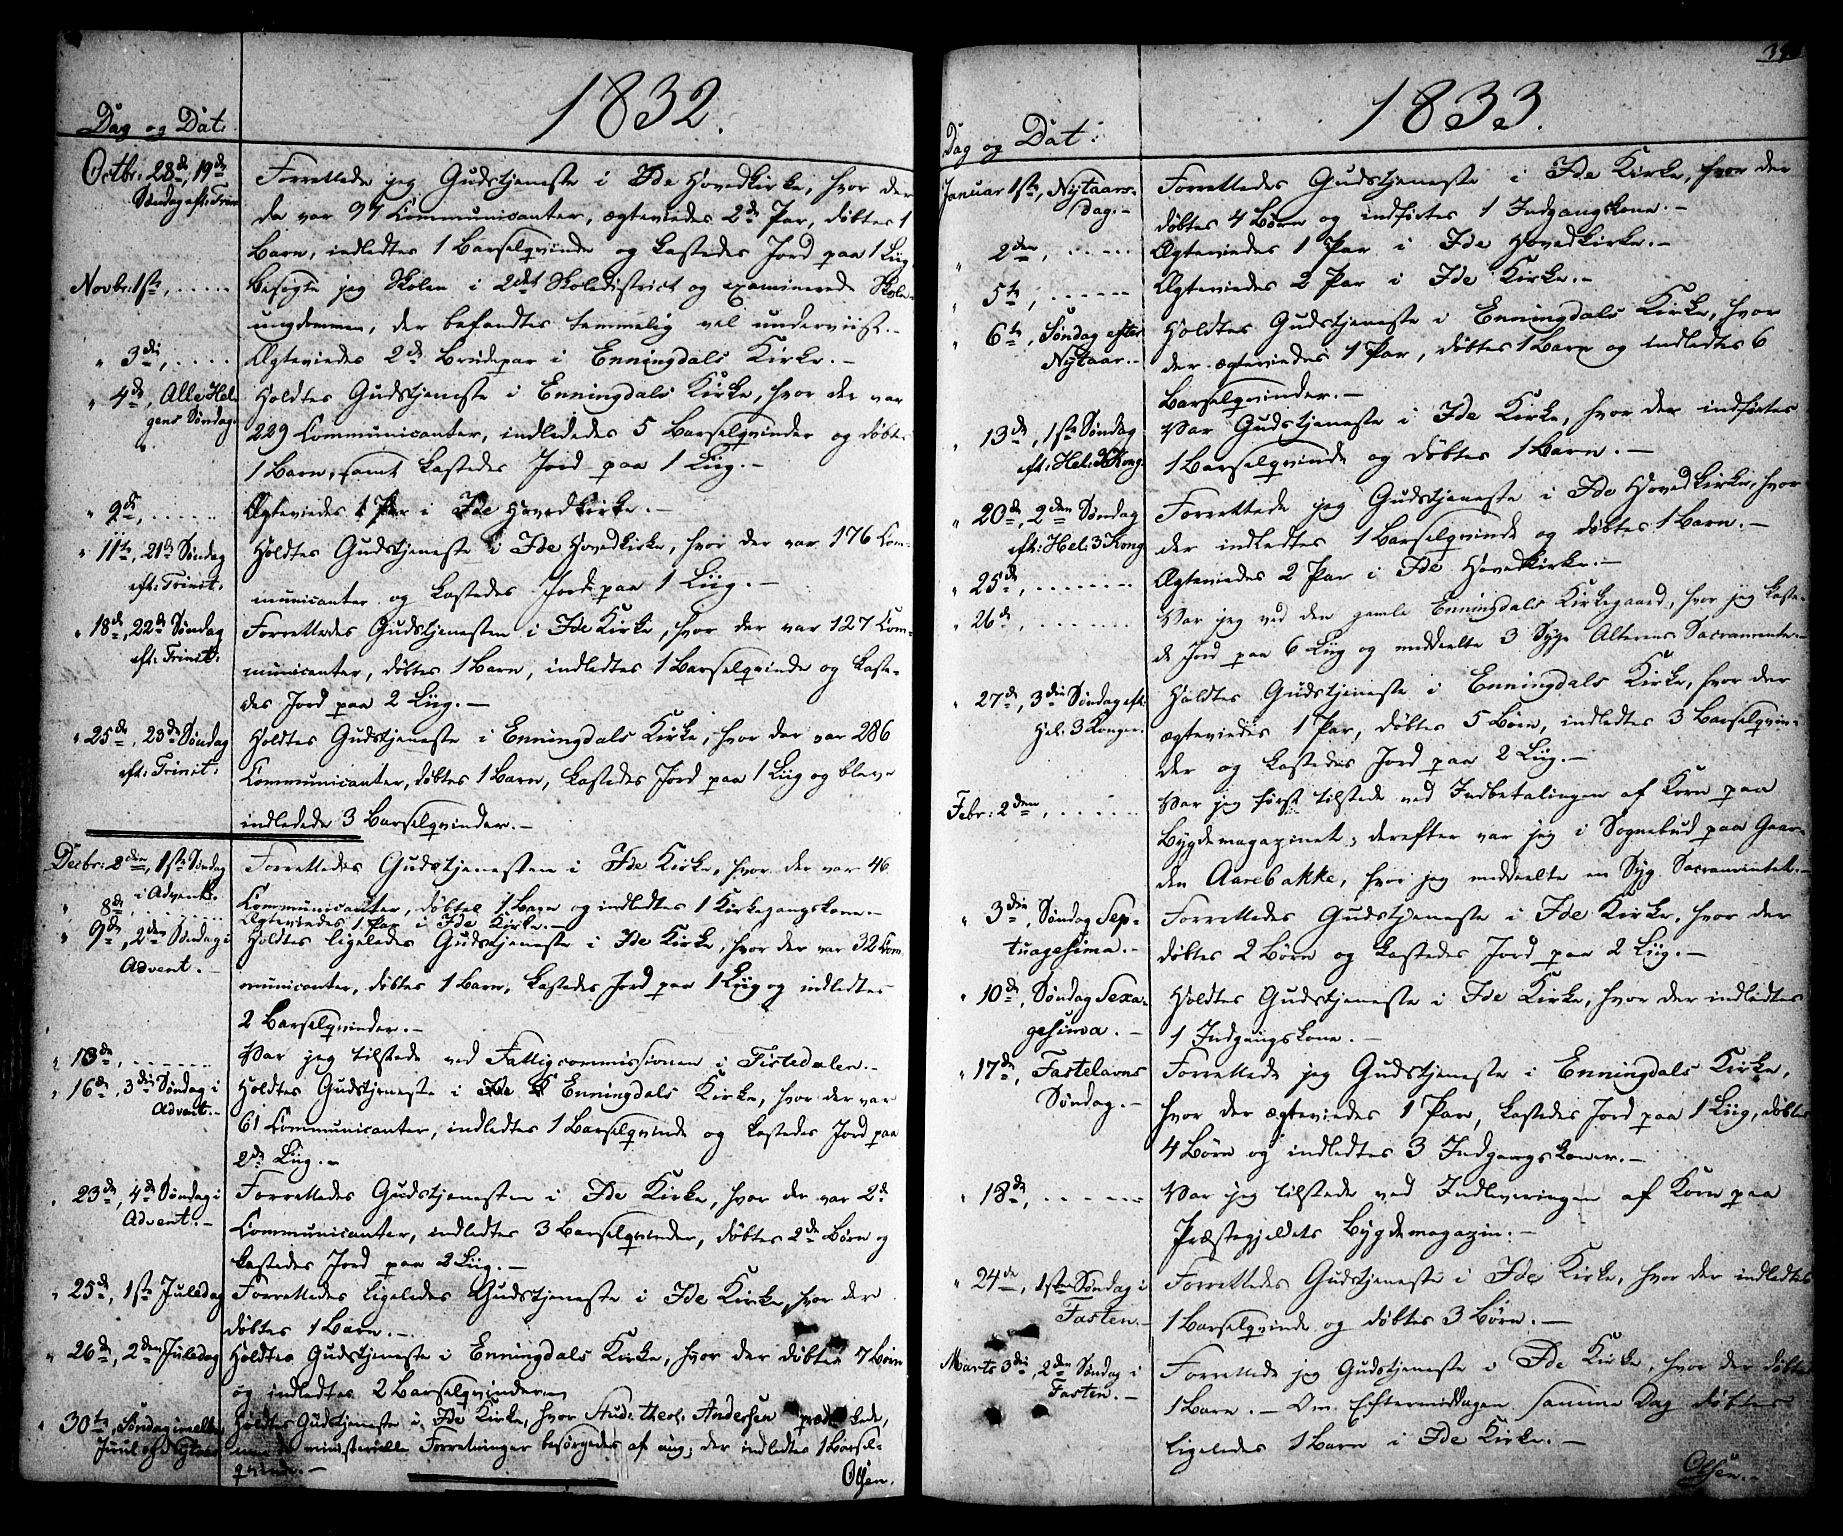 1832.
Dag og Dat:
Octbr: 28de, 19de
Søndag eft: Trin
Forrettede jeg Gudstjeneste i Ide Hovedkirke, hvor der
da var 97 Communicanter, ægteviedes 2de Par, døbtes 1
Barn, indledtes 1 Barselqvinde og kastedes Jord paa 1 Liig.
Novbr: 1ste, . . . . .
Besøgte jeg Skolen i 2det Skoledistrict og examinerede Skole-
ungdommen, der befandtes temmelig vel underviist.-
" 3die, . . . . .
Ægteviedes 2de Brudepar i Enningdals Kirke.-
" 4de, Alle Hel-
gens Søndag.
Holdtes Gudstjeneste i Enningdals Kirke, hvor der var
229 Communicanter, indledtes 5 Barselqvinder og døbtes
1 Barn, samt kastedes Jord paa 1 Liig.-
" 9de, . . . . .
Ægteviedes 1 Par i Ide Hovedkirke.-
" 11te, 21de Søndag
eft: Trinit:
Holdtes Gudstjeneste i Ide Hovedkirke, hvor der var 176 Com-
municanter og kastedes Jord paa 1 Liig.-
" 18de, 22de Søndag
eft: Trinit:
Forrettedes Gudstjenesten i Ide Kirke, hvor der var 127 Com-
municanter, døbtes 1 Barn, indledtes 1 Barselqvinde og kaste-
des Jord paa 2 Liig.-
" 25de, 23de Søndag
eft: Trinit:
Holdtes Gudstjeneste i Enningdals Kirke, hvor der var 286
Communicanter, døbtes 1 Barn, kastedes Jord paa 1 Liig og bleve
indledede 3 Barselqvinder.-
Decbr: 2den, 1ste Søndag
i Advent.
Forrettedes Gudstjenesten i Ide Kirke, hvor der var 46
Communicanter, døbtes 1 Barn og indledtes 1 Kirkegangskone.-
" 8de, . . . . .
Ægteviedes 1 Par i Ide Kirke.-
" 9de, 2den Søndag i
Advent.-
Holdtes ligeledes Gudstjeneste i Ide Kirke, hvor der var 32 Com
municanter, døbtes 1 Barn, kastedes Jord paa 1 Liig og indledtes
2 Barselqvinder.-
" 13de, . . . . .
Var jeg tilstede ved Fattigcommissionen i Tistedalen.-
" 16de, 3die Søndag i
Advent.-
Holdtes Gudstjeneste i Ide K Enningdals Kirke, hvor der var
61 Communicanter, indledtes 1 Barselqvinde og kastedes Jord paa
2de Liig.-
" 23de, 4de Søndag i
Advent.-
Forrettedes Gudstjenesten i Ide Kirke, hvor der var 2de
Communicanter, indledtes 3 Barselqvinder, døbtes 2de Børn og
kastedes Jord paa 2 Liig.-
" 25de, 1ste Juledag
Forrettedes ligeledes Gudstjeneste i Ide Kirke, hvor der
døbtes 1 Barn.-
" 26de, 2den Juledag
Holdtes Gudstjeneste i Enningdals Kirke, hvor der døbtes 7 Børn
og indledtes 2 Barselqvinder
" 30te, Søndag imellem
Juul og Nytaar
Holdtes Gudstjeneste i Ide Kirke, hvor Stud: theol: Andersen prædikede,
men de ministerielle Forretninger besørgedes af mig; der indledtes 1 Barsel-
qvinde.-
Olsen.
1833.
Dag og Dat:
Januar 1ste, Nytaars-
dag.-
Forrettedes Gudstjeneste i Ide Kirke, hvor der
døbtes 4 Børn og indførtes 1 Indgangskone.-
" 2den, . . . . .
Ægteviedes 1 Par i Ide Hovedkirke.-
" 5te, . . . . .
Ægteviedes 2 Par i Ide Kirke.-
" 6te, Søndag efter
Nytaar.-
Holdtes Gudstjeneste i Enningdals Kirke, hvor
der ægteviedes 1 Par, døbtes 1 Barn og indledtes 6
Barselqvinder.-
" 13de, 1ste Søndag
eft: Hel: 3 Kong:
Var Gudstjeneste i Ide Kirke, hvor der indførtes
1 Barselqvinde og døbtes 1 Barn.-
" 20de, 2den Søndag
eft: Hel: 3 Kong:
Forrettede jeg Gudstjeneste i Ide Hovedkirke, hvor
der indledtes 1 Barselqvinde og døbtes 1 Barn.-
" 25de, . . . . .
Ægteviedes 2 Par i Ide Hovedkirke.-
" 26de, . . . . .
Var jeg ved den gamle Enningdals Kirkegaard, hvor jeg kaste-
de Jord paa 6 Liig og meddeelte 3 Syge Alterens Sacramente.-
" 27de, 3die Søndag eft:
Hel: 3 Konger.
Holdtes Gudstjeneste i Enningdals Kirke, hvor der
ægteviedes 1 Par, døbtes 5 Børn, indledtes 3 Barselqvin-
der og kastedes Jord paa 2 Liig.-
Febr: 2den, . . . . .
Var jeg først tilstede ved Indbetalingen af Korn paa
Bygdemagazinet; derefter var jeg i Sognebud paa Gaar-
den Aarebakke, hvor jeg meddeelte en Syg Sacramentet.-
" 3die, Søndag Sep-
tuagesima.-
Forrettedes Gudstjeneste i Ide Kirke, hvor der
døbtes 2 Børn og kastedes Jord paa 2 Liig.-
" 10de, Søndag Sexa-
gesima.-
Holdtes Gudstjeneste i Ide Kirke, hvor der indledtes
1 Indgangskone.-
" 17de, Fastelavns
Søndag.-
Forrettede jeg Gudstjeneste i Enningdals Kirke,
hvor der ægteviedes 1 Par, kastedes Jord paa 1 Liig, døbtes
4 Børn og indledtes 3 Indgangskoner.-
" 18de, . . . . .
Var jeg tilstede ved Indleveringen af Korn paa
Præstegjeldets Bygdemagazin.-
" 24de, 1ste Søndag i
Fasten.-
Forrettedes Gudstjeneste i Ide Kirke, hvor der indledtes
1 Barselqvinde og døbtes 3 Børn.-
Marts 3die, 2den Søndag i
Fasten.-
Forrettede jeg Gudstjeneste i Ide Kirke, hvor der døbtes
1 Barn.- Om Eftermiddagen samme Dag døbtes
ligeledes 1 Barn i Ide Kirke.-
Olsen.-